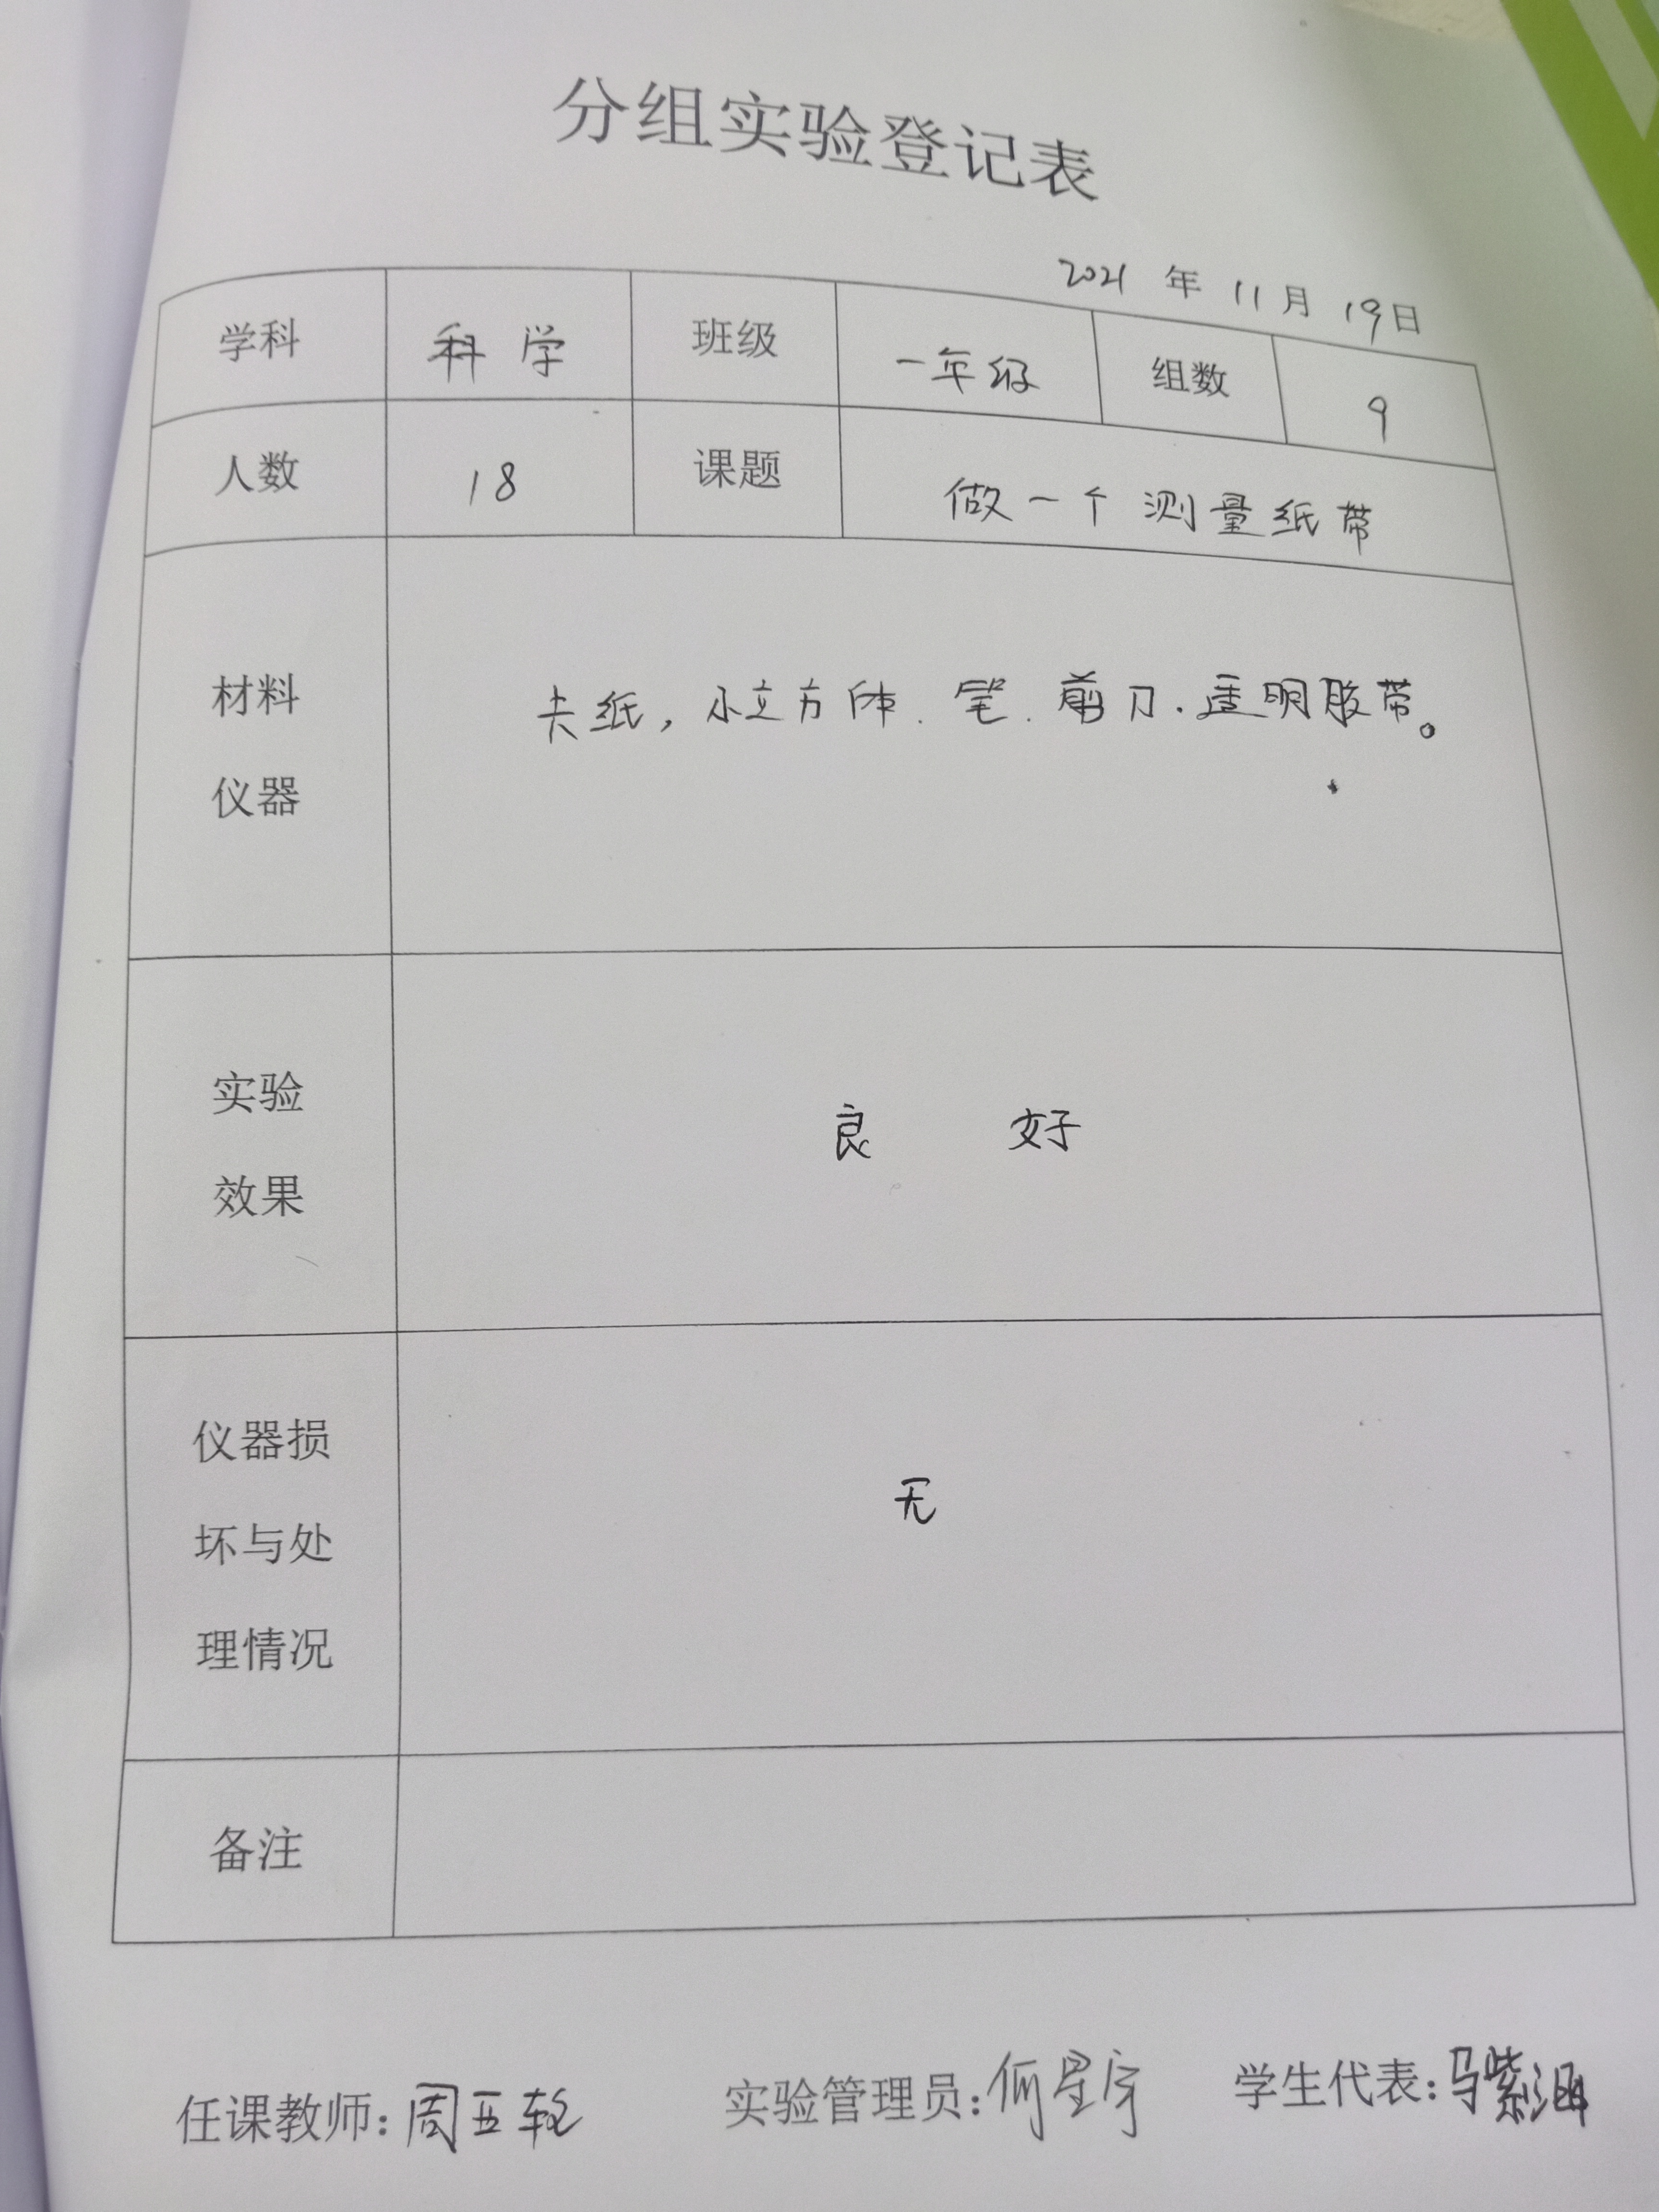 分组实验登记表
2021 年 11 月 19 日
学科 科学 班级 一年级 组数 9
人数 18 课题 做一个测量纸带
材料
仪器
卡纸，小立方体．笔．剪刀．透明胶带。
实验
效果
良 好
仪器损
坏与处
理情况
无
备注
任课教师：周五 实验管理员：何星宇 学生代表：马紫涵